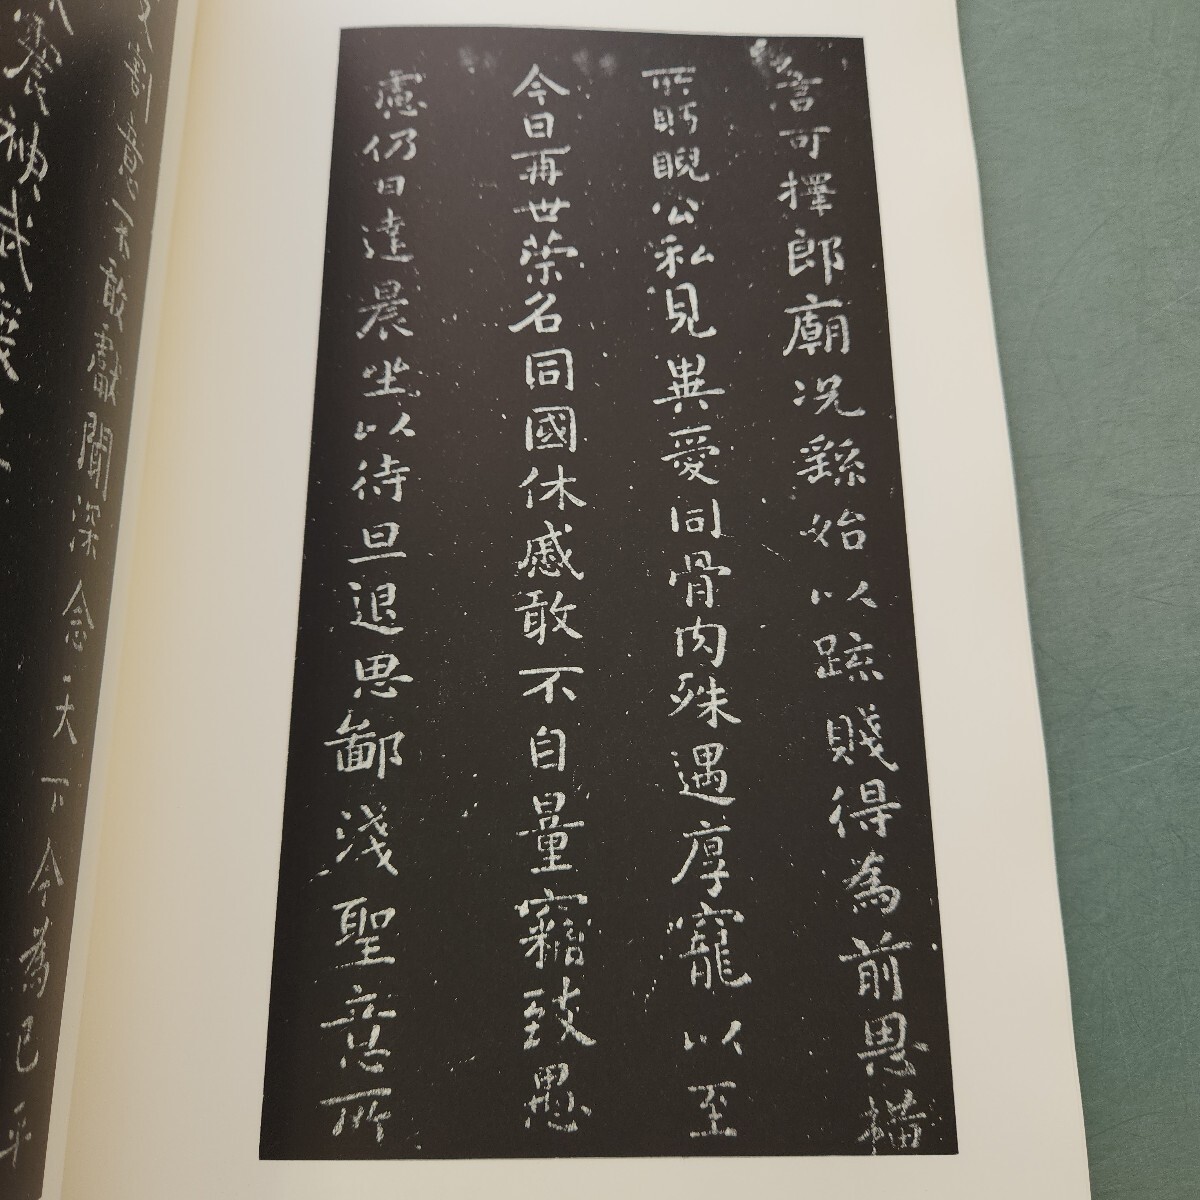 言可擇郎廟況繇始以疏賤得為前恩橫
所眄睨公私見異愛同骨肉殊遇厚寵以至
今日再世榮名同國休慼敢不自量竊致愚
慮仍日達晨坐以待旦退思鄙淺聖意所
又割意不敢獻聞深念天下今為已平
震神武度